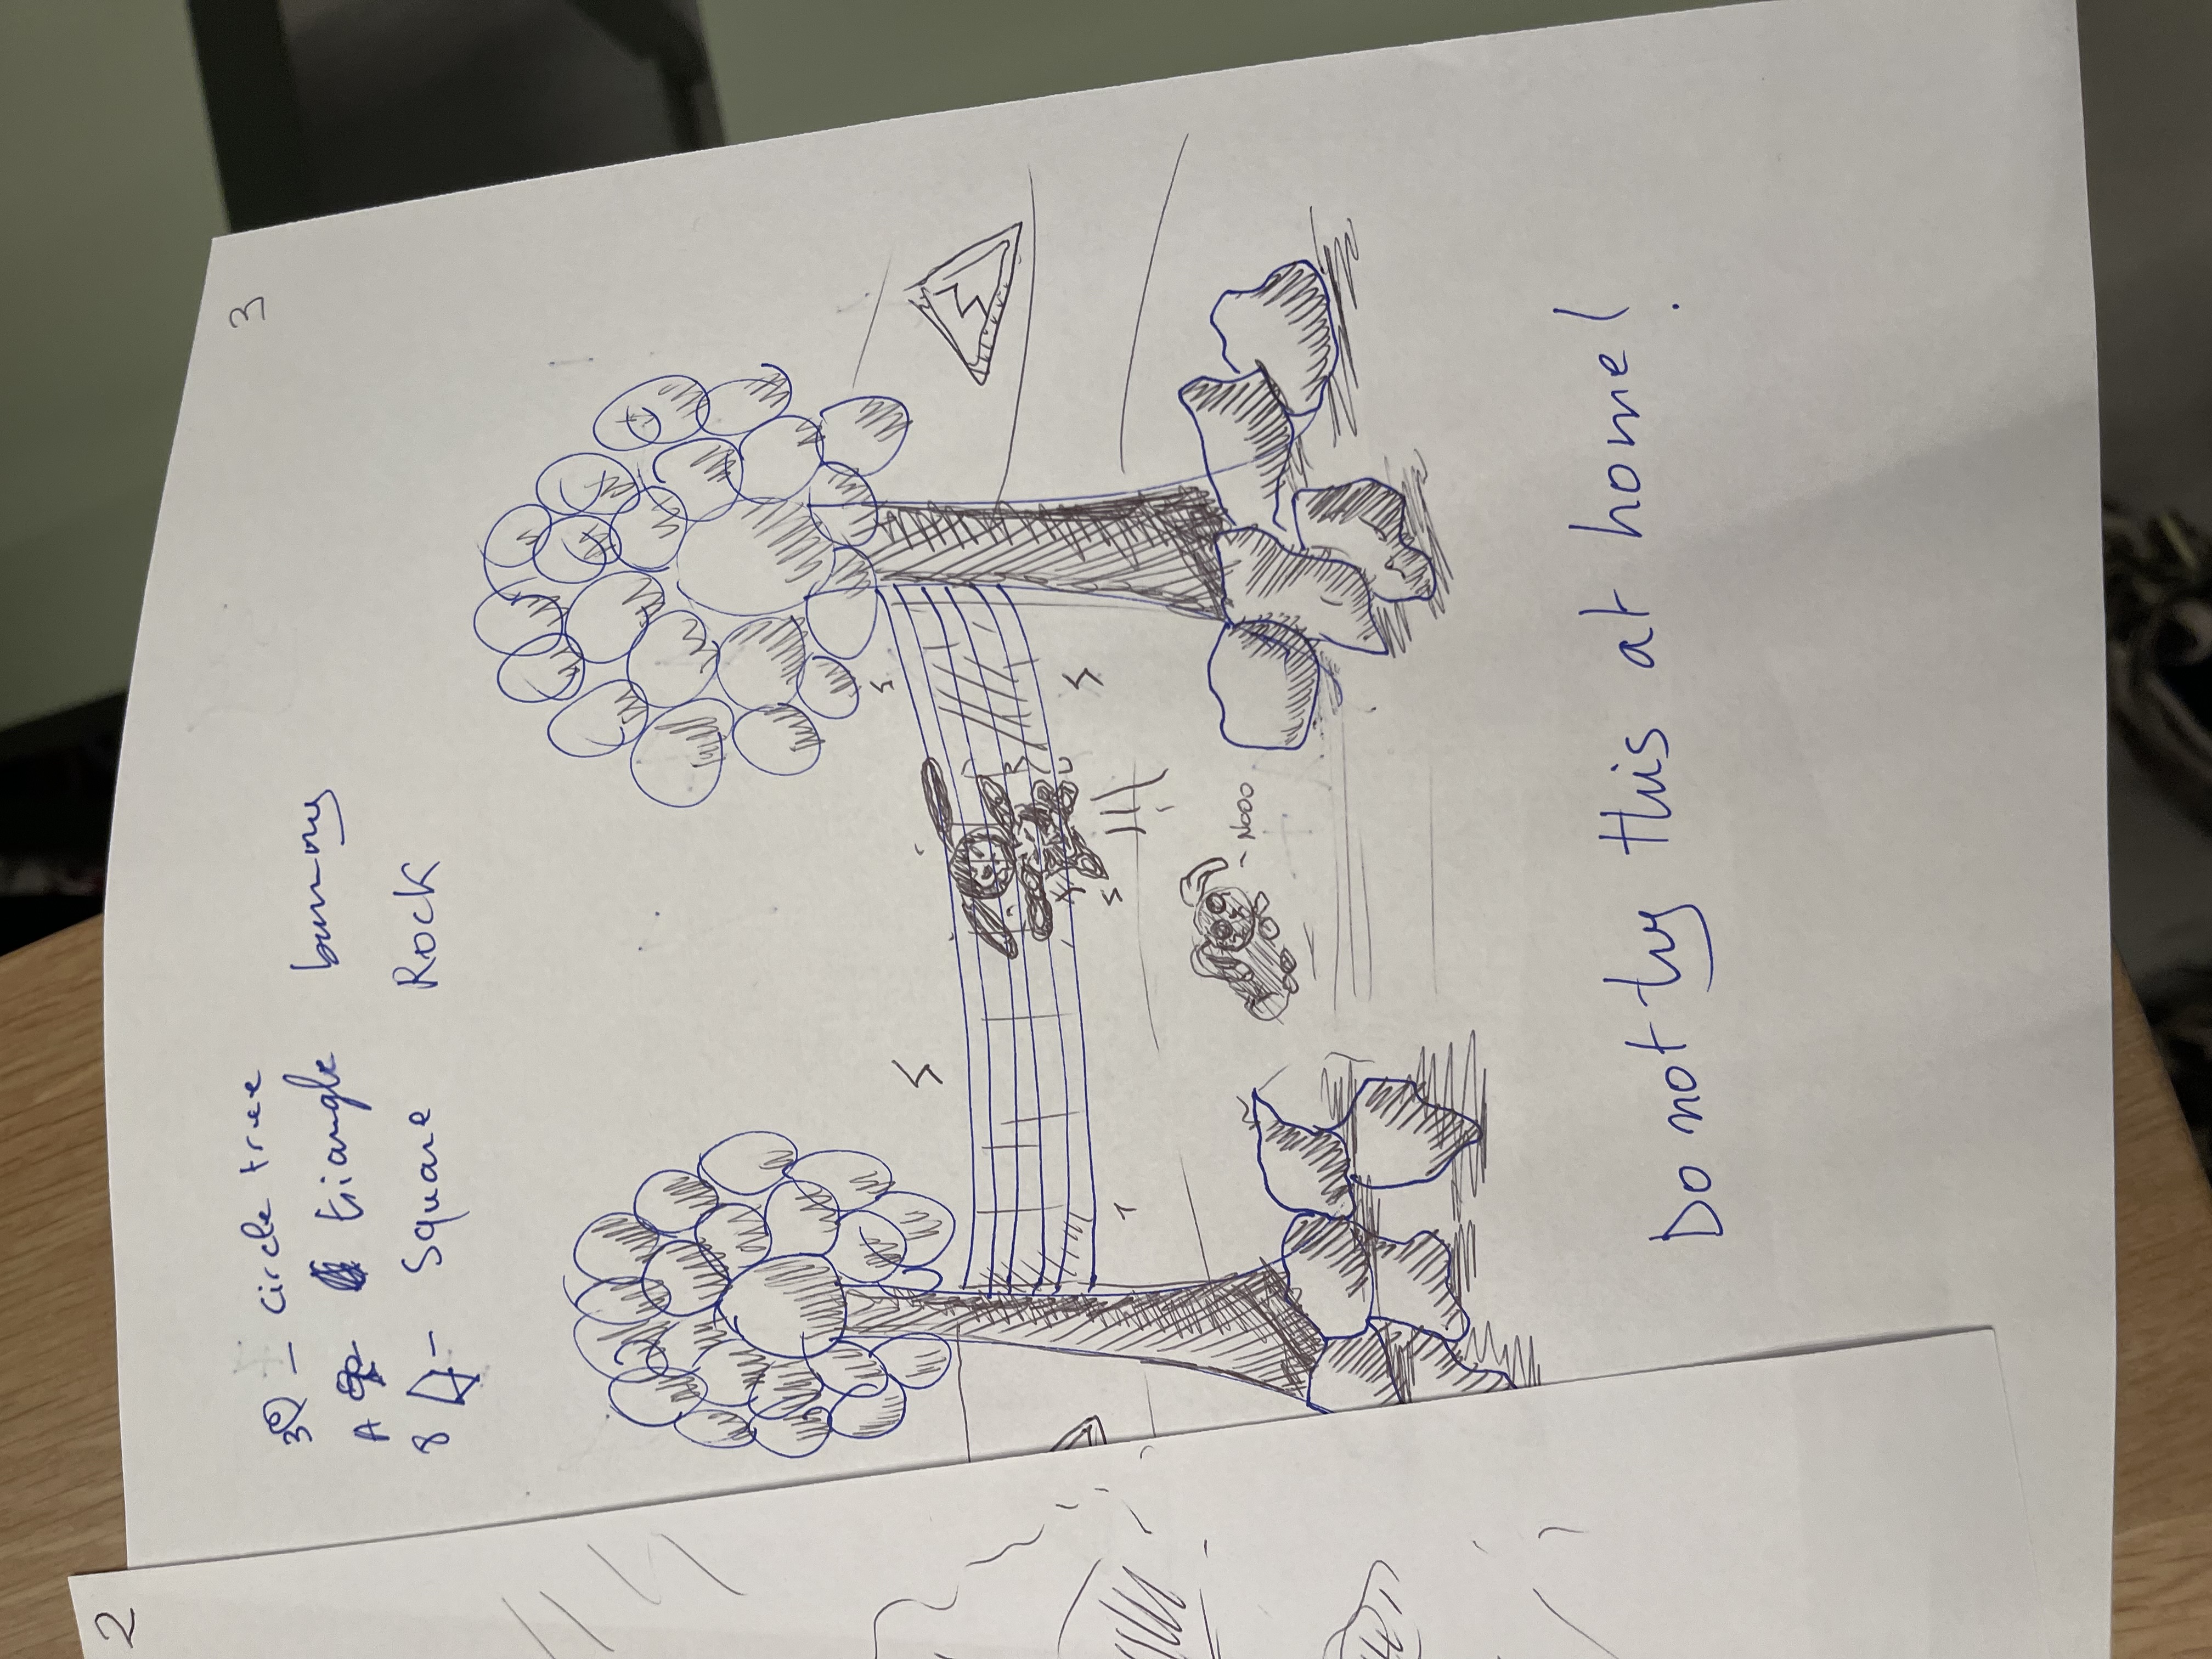 2
3
3 - circle tree
A - triangle bunny
8 - Square Rock
- Nooo
Do not try this at home!